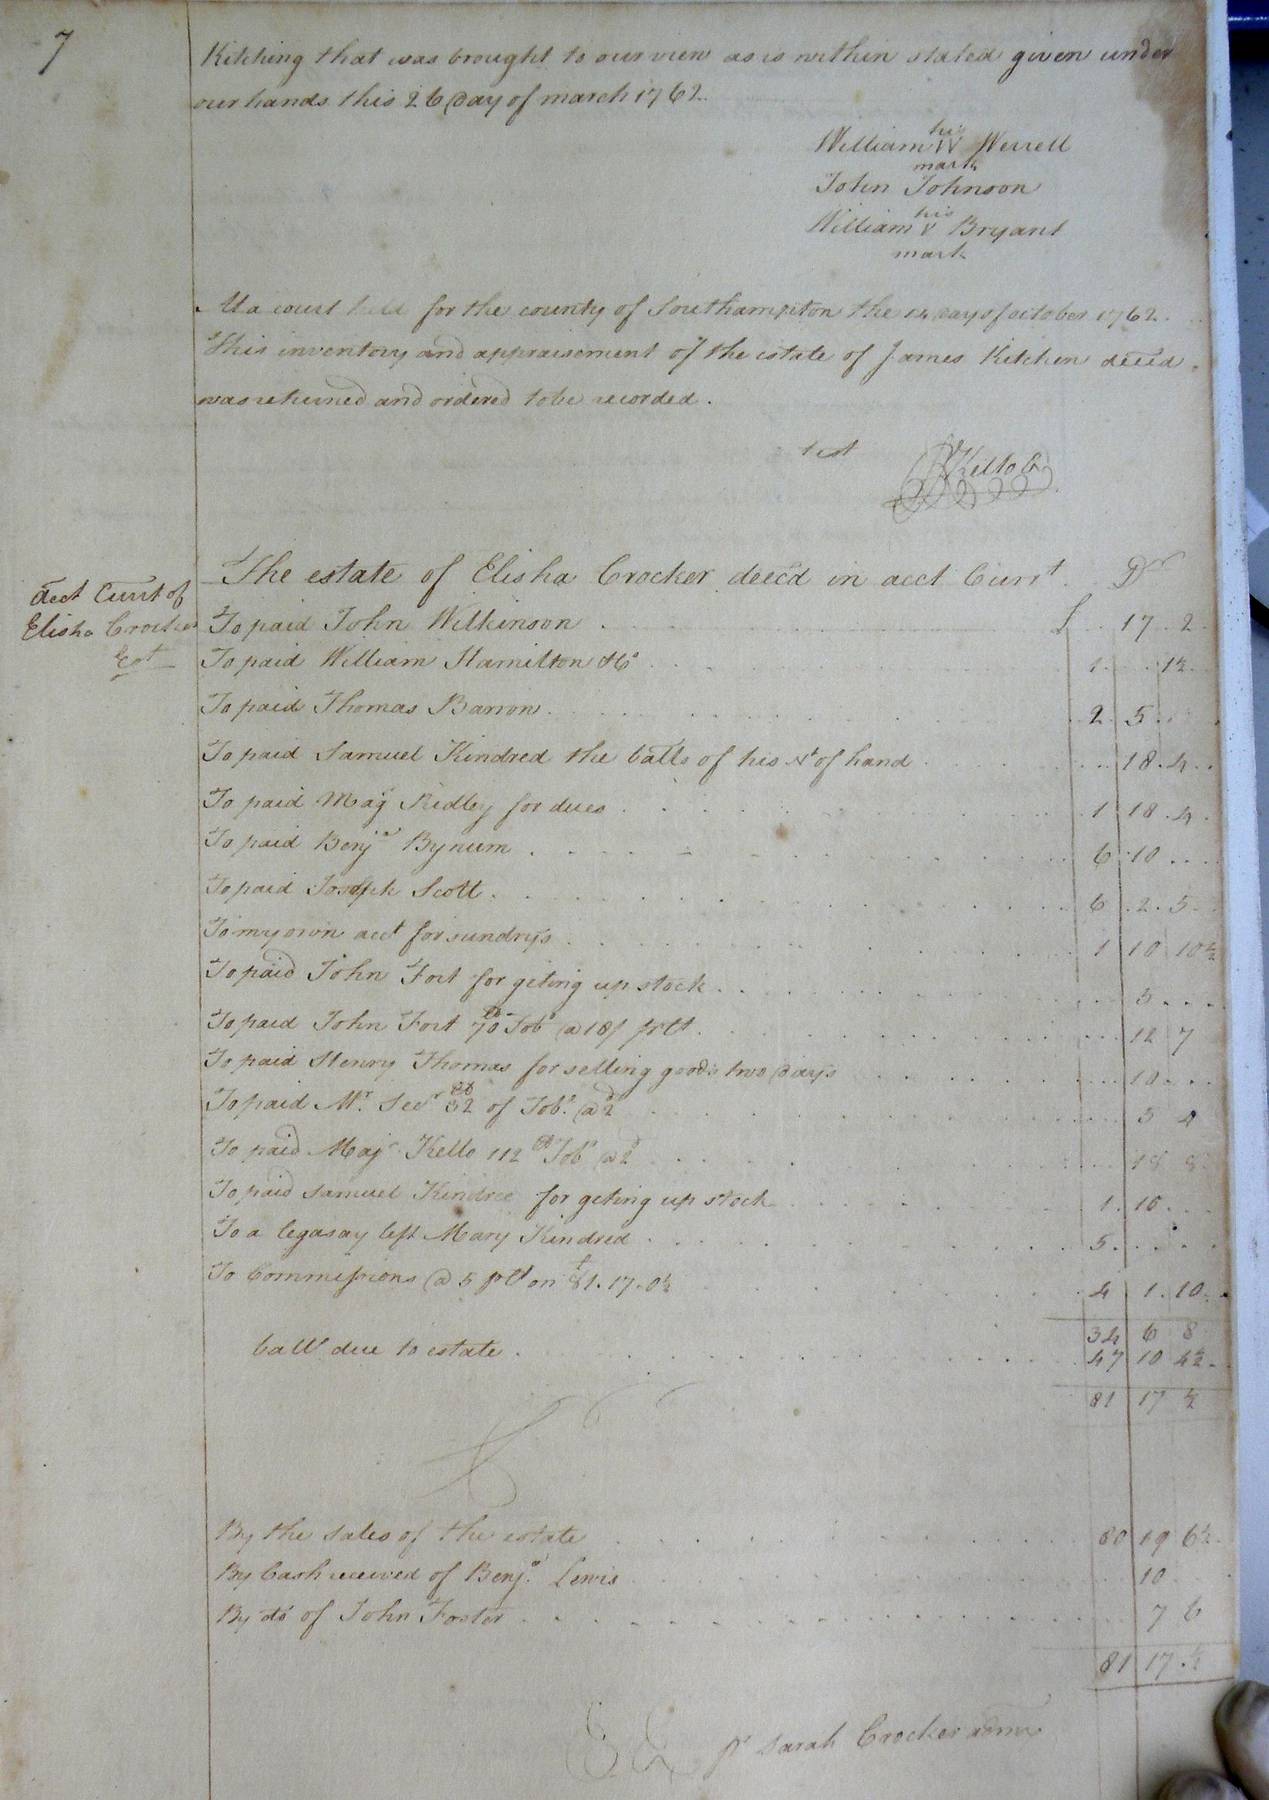 7
Kitching that was brought to our view as is within stated given under
our hands this 26 Day of march 1762.
his
William W Werrell
mark
John Johnson
his
William V Bryant
mark
At a court held for the county of Southampton the 14 day of october 1762.
This inventory and appraisement of the estate of James Kitchen deced
was returned and ordered to be recorded.
test
R Kello C
acct Currt of
Elisha Crocker
Est
The estate of Elisha Crocker deec'd in acct Currt. Dr
To paid John Wilkinson £ 17 2
To paid William Hamilton & Co 1 1½
To paid Thomas Barron 2 5
To paid Samuel Kindred the balls of his Nt of hand 18 4
To paid Majr Ridley for dues 1 18 4
To paid Benja Bynum 6 10
To paid Joseph Scott 6 2 5
To my own acct for sundrys 1 10 10½
To paid John Fort for geting up stock 5
To paid John Fort 70 lb Tobo @ 18/ pr Ct 12 7
To paid Henry Thomas for selling goods two days 10
To paid Mr. Secr 32 lb of Tobo @ 2d 5 4
To paid Majr Kello 112 lb Tobo @ 2d 18 8
To paid Samuel Kindred for geting up stock 1 10
To a legasay left Mary Kindred 5
To Commissions @ 5 pr Ct on £81.17.0½ 4 1 10
34 6 8
balle due to estate 47 10 4½
81 17 ½
By the sales of the estate 80 19 6½
By Cash received of Benja. Lewis 10
By do of John Foster 7 6
81 17 ½
pr Sarah Crocker admx